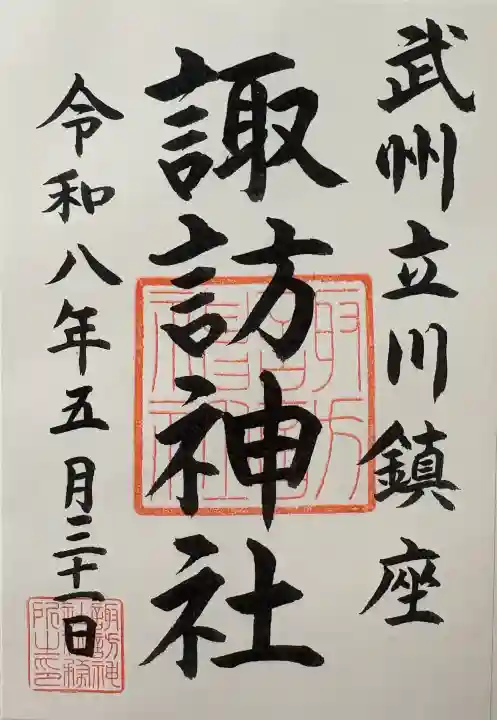 武州立川鎮座
諏訪神社
令和八年五月三十一日